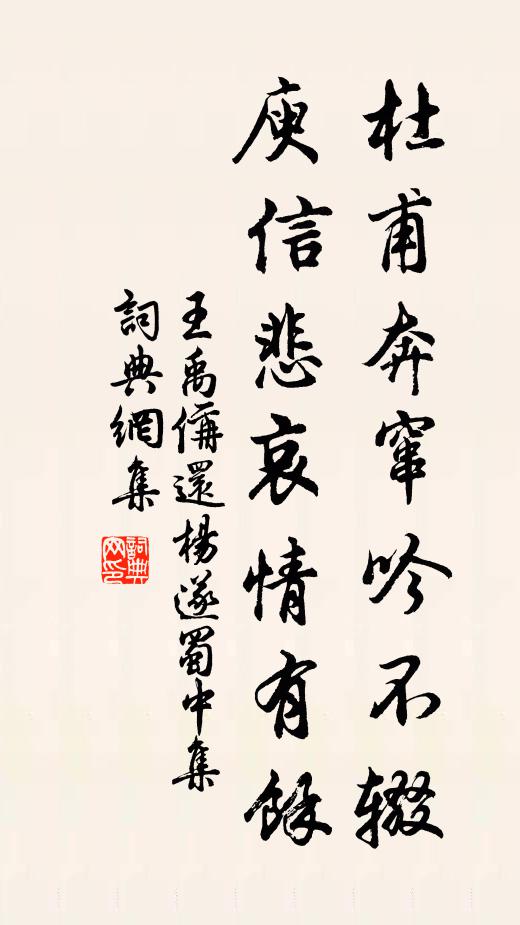 杜甫奔竄吟不辍
庾信悲哀情有餘
王禹偁還楊遂蜀中集
詞典網集
詞典网印